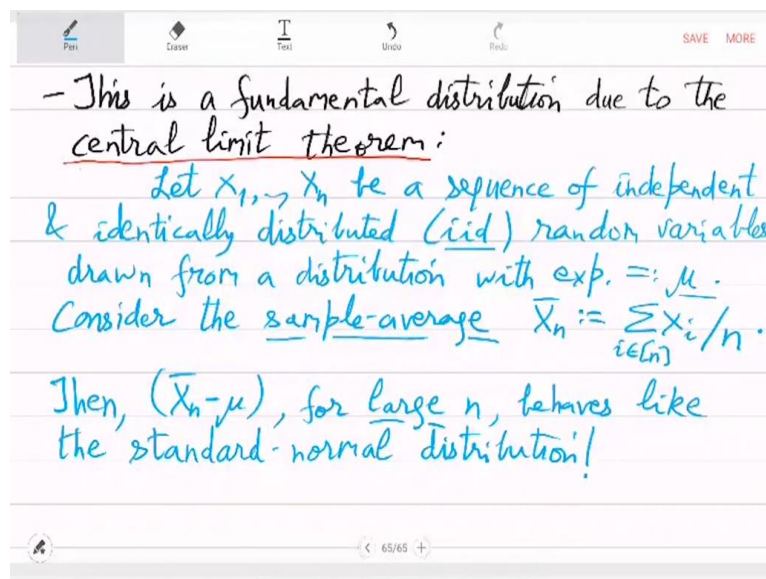 Pen Eraser Text Undo Redo SAVE MORE
- This is a fundamental distribution due to the
central limit theorem:
Let X₁,.., Xₙ be a sequence of independent
& identically distributed (iid) random variables
drawn from a distribution with exp. =: μ.
Consider the sample-average X̄ₙ := Σ_{i∈[n]} Xᵢ/n.
Then, (X̄ₙ-μ), for large n, behaves like
the standard-normal distribution!
65/65